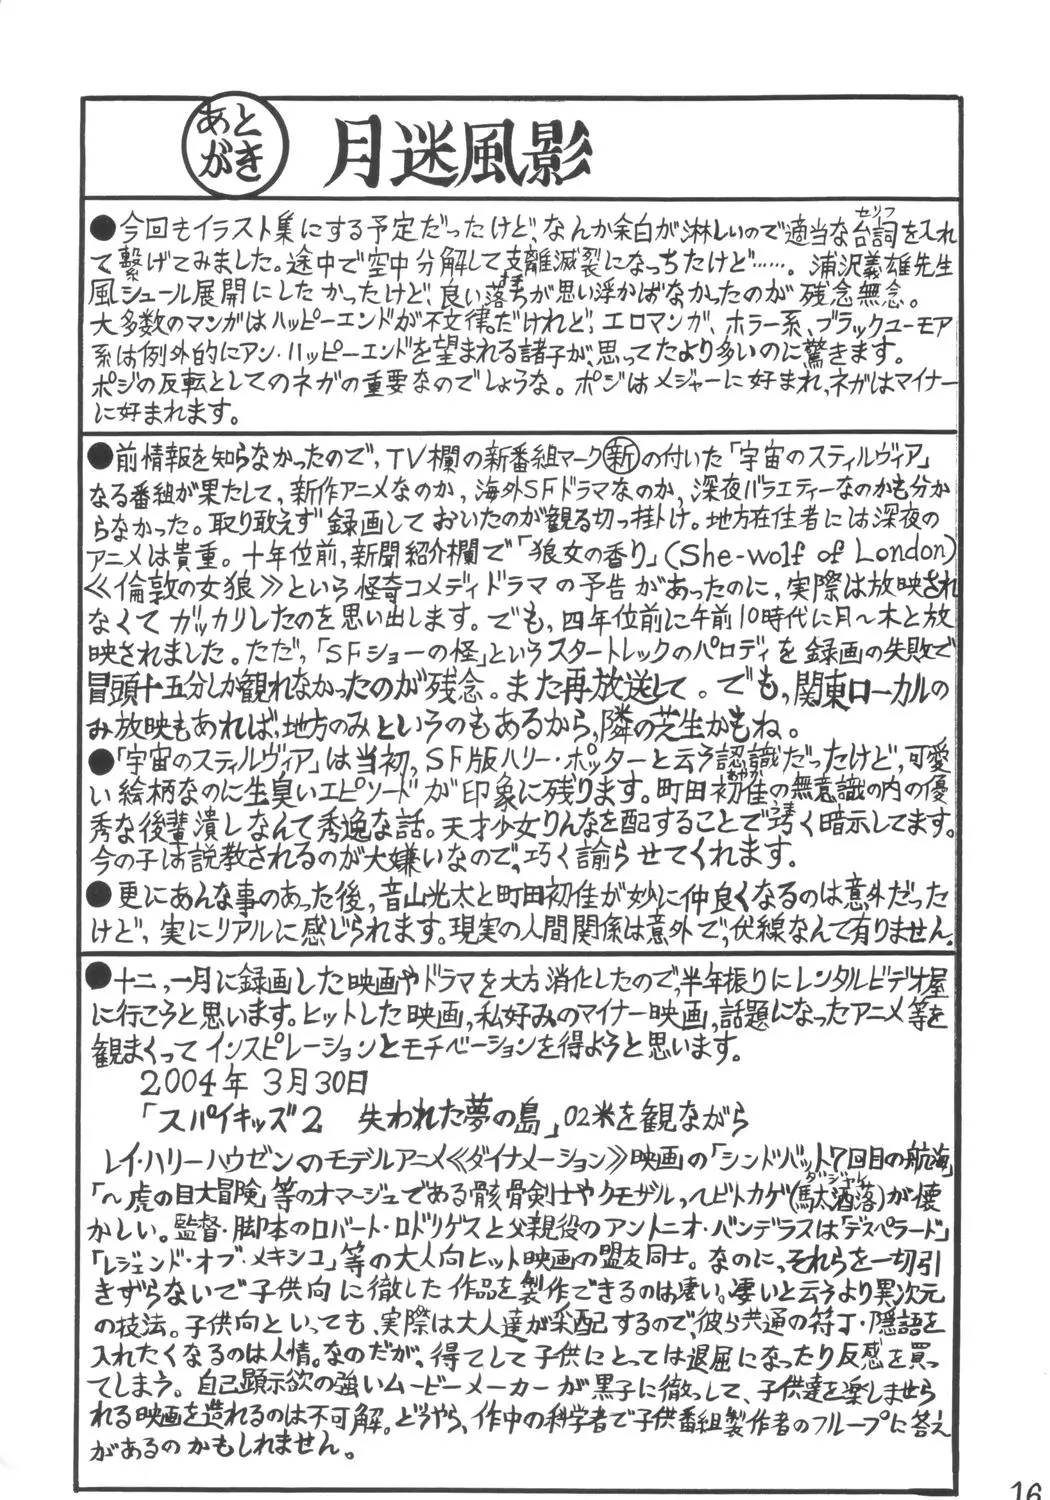 あとがき
月迷風影
●今回もイラスト集にする予定だったけど、なんか余白が淋しいので適当な台詞を入れ
セリフ
て繋げてみました。途中で空中分解して支離滅裂になっちたけど……。浦沢義雄先生
風シュール展開にしたかったけど、良い落ちが思い浮かばなかったのが残念無念。
大多数のマンガはハッピーエンドが不文律だけれど、エロマンガ、ホラー系、ブラックユーモア
系は例外的にアン・ハッピーエンドを望まれる諸子が、思ってたより多いのに驚きます。
ポジの反転としてのネガの重要なのでしょうな。ポジはメジャーに好まれ、ネガはマイナー
に好まれます。
●前情報を知らなかったので、TV欄の新番組マーク新の付いた「宇宙のスティルヴィア」
なる番組が果たして、新作アニメなのか、海外SFドラマなのか、深夜バラエティーなのかも分か
らなかった。取り敢えず録画しておいたのが観る切っ掛け。地方在住者には深夜の
アニメは貴重。十年位前、新聞紹介欄で「狼女の香り」(She-wolf of London)
≪倫敦の女狼≫という怪奇コメディドラマの予告があったのに、実際は放映され
なくてガッカリしたのを思い出します。でも、四年位前に午前10時代に月～木と放
映されました。ただ、「SFショーの怪」というスタートレックのパロディを録画の失敗で
冒頭十五分しか観れなかったのが残念。また再放送して。でも、関東ローカルの
み放映もあれば、地方のみというのもあるから、隣の芝生かもね。
●「宇宙のスティルヴィア」は当初、SF版ハリー・ポッターと云う認識だったけど、可愛
い絵柄なのに生臭いエピソードが印象に残ります。町田初佳の無意識の内の優
秀な後輩潰しなんて秀逸な話。天才少女りんなを配することで巧く暗示してます。
今の子は説教されるのが大嫌いなので、巧く諭らせてくれます。
●更にあんな事のあった後、音山光太と町田初佳が妙に仲良くなるのは意外だった
けど、実にリアルに感じられます。現実の人間関係は意外で、伏線なんて有りません。
●十二、一月に録画した映画やドラマを大方消化したので、半年振りにレンタルビデオ屋
に行こうと思います。ヒットした映画、私好みのマイナー映画、話題になったアニメ等を
観まくってインスピレーションとモチベーションを得ようと思います。
2004年 3月30日
「スパイキッズ2 失われた夢の島」02米を観ながら
レイ・ハリーハウゼンのモデルアニメ≪ダイナメーション≫映画の「シンドバット7回目の航海」
「～虎の目大冒険」等のオマージュである骸骨剣士やクモザル、ヘビトカゲ(駄洒落)が懐
ダジャレ
かしい。監督・脚本のロバート・ロドリゲスと父親役のアントニオ・バンデラスは「デスペラード」
「レジェンド・オブ・メキシコ」等の大人向ヒット映画の盟友同士。なのに、それらを一切引
きずらないで子供向に徹した作品を製作できるのは凄い。凄いと云うより異次元
の技法。子供向といっても、実際は大人達が采配するので、彼ら共通の符丁・隠語を
入れたくなるのは人情。なのだが、得てして子供にとっては退屈になったり反感を買っ
てしまう。自己顕示欲の強いムービーメーカーが黒子に徹っして、子供達を楽しませら
れる映画を造れるのは不可解。どうやら、作中の科学者で子供番組製作者のフループに答え
があるのかもしれません。
16